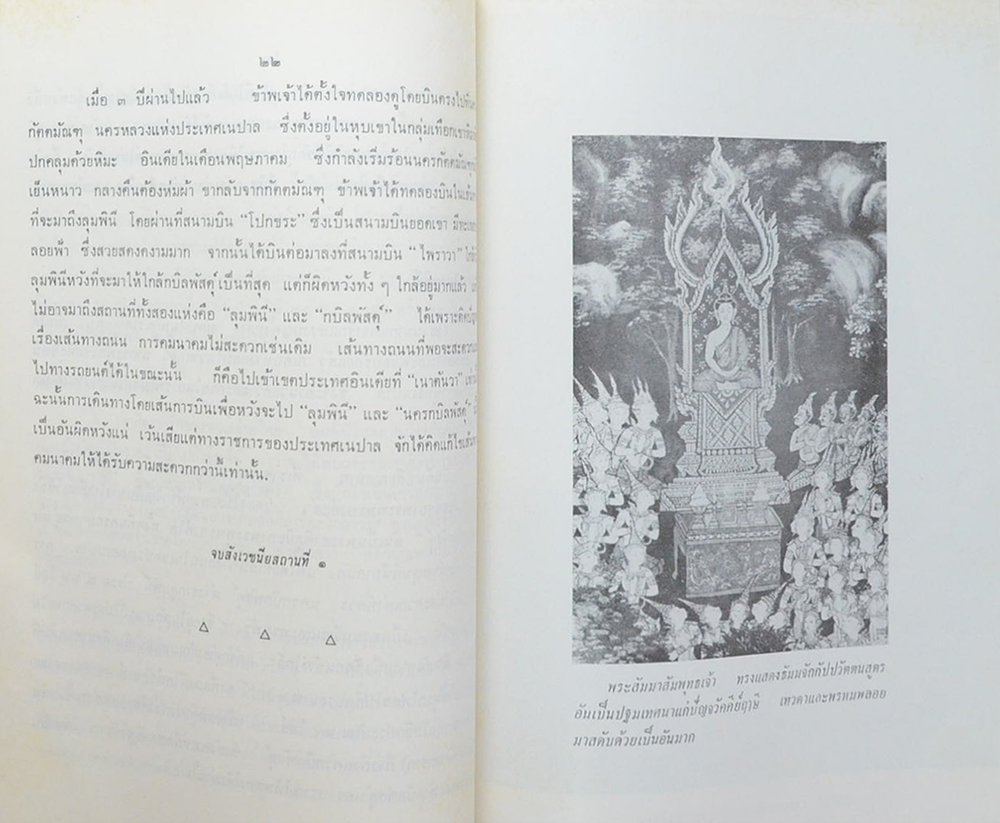 ๒๒
เมื่อ ๓ ปีผ่านไปแล้ว ข้าพเจ้าได้ตั้งใจทดลองดูโดยบินตรงไปที่
กัตตมัณฑุ นครหลวงแห่งประเทศเนปาล ซึ่งตั้งอยู่ในหุบเขาในกลุ่มเทือกเขา
ปกคลุมด้วยหิมะ อินเดียในเดือนพฤษภาคม ซึ่งกำลังเริ่มร้อนนครกัตตมัณฑุ
เย็นหนาว กลางคืนต้องห่มผ้า ขากลับจากกัตตมัณฑุ ข้าพเจ้าได้ทดลองบินใน
ที่จะมาถึงลุมพินี โดยผ่านที่สนามบิน “โปกขระ” ซึ่งเป็นสนามบินยอดเขา มี
ลอยฟ้า ซึ่งสวยสดงดงามมาก จากนั้นได้บินต่อมาลงที่สนามบิน “ไพราวา”
ลุมพินีหวังที่จะมาให้ใกล้กบิลพัสดุ์เป็นที่สุด แต่ก็ผิดหวังทั้ง ๆ ใกล้อยู่มากแล้ว
ไม่อาจมาถึงสถานที่ทั้งสองแห่งคือ “ลุมพินี” และ “กบิลพัสดุ์” ได้เพราะติดขัด
เรื่องเส้นทางถนน การคมนาคมไม่สะดวกเช่นเดิม เส้นทางถนนที่พอจะสะดวก
ไปทางรถยนต์ได้ในขณะนั้น ก็คือไปเข้าเขตประเทศอินเดียที่ “เนาตันวา”
ฉะนั้นการเดินทางโดยเส้นการบินเพื่อหวังจะไป “ลุมพินี” และ “นครกบิลพัสดุ์”
เป็นอันผิดหวังแน่ เว้นเสียแต่ทางราชการของประเทศเนปาล จักได้คิดแก้ไข
คมนาคมให้ได้รับความสะดวกกว่านี้เท่านั้น.
จบสังเวชนียสถานที่ ๑
พระสัมมาสัมพุทธเจ้า ทรงแสดงธัมมจักกัปปวัตตนสูตร
อันเป็นปฐมเทศนาแก่ปัญจวัคคีย์ฤาษี เทวดาและพรหมพลอย
มาสดับด้วยเป็นอันมาก